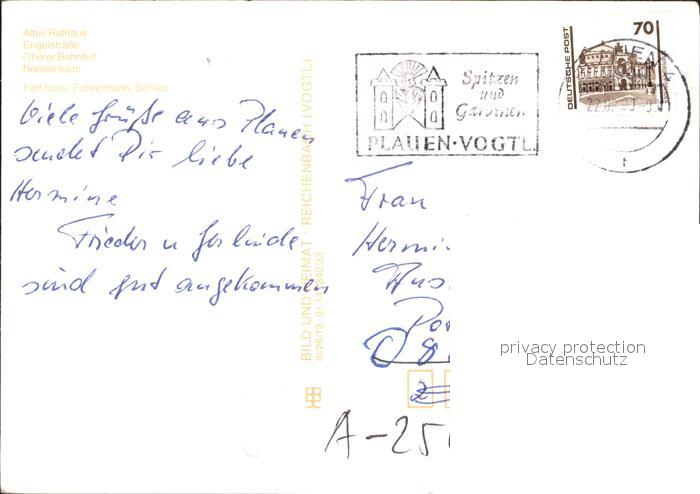 Altes Rathaus
Engelstraße
Oberer Bahnhof
Nonnenturm
Farbfotos: Fichtelmann, Schleu
Viele Grüße aus Plauen
sendet Dir liebe
Hermine
Frieder u Gerlinde
sind gut angekommen
BILD UND HEIMAT · REICHENBACH (VOGTL)
III/26/13 01 14
Spitzen
und
Gardinen
PLAUEN·VOGTL.
DEUTSCHE POST
70
Frau
Hermi
Pos
A-25
privacy protection
Datenschutz